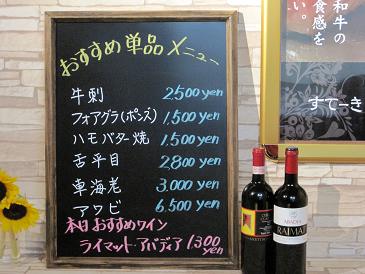 おすすめ単品メニュー
牛刺 2,500yen
フォアグラ(ポンズ) 1,500yen
ハモバター焼 1,500yen
舌平目 2,800yen
車海老 3,000yen
アワビ 6,500yen
本日おすすめワイン
ライマット・アバディア 1300yen
和牛の
食感を
すてーき
ABADIA
RAIMAT